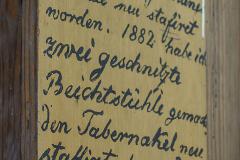 neu stafiret
worden. 1882. habe ich
zwei geschnitzte
Beichtstühle gemach
den Tabernakel neu
stafirt